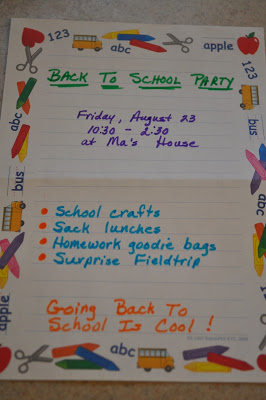 123 abc apple
Back To School Party
Friday, August 23
10:30 - 2:30
at Ma's House
• School crafts
• Sack lunches
• Homework goodie bags
• Surprise Fieldtrip
Going Back To
School Is Cool!
abc
bus
apple
123
bus
abc
apple
123
abc